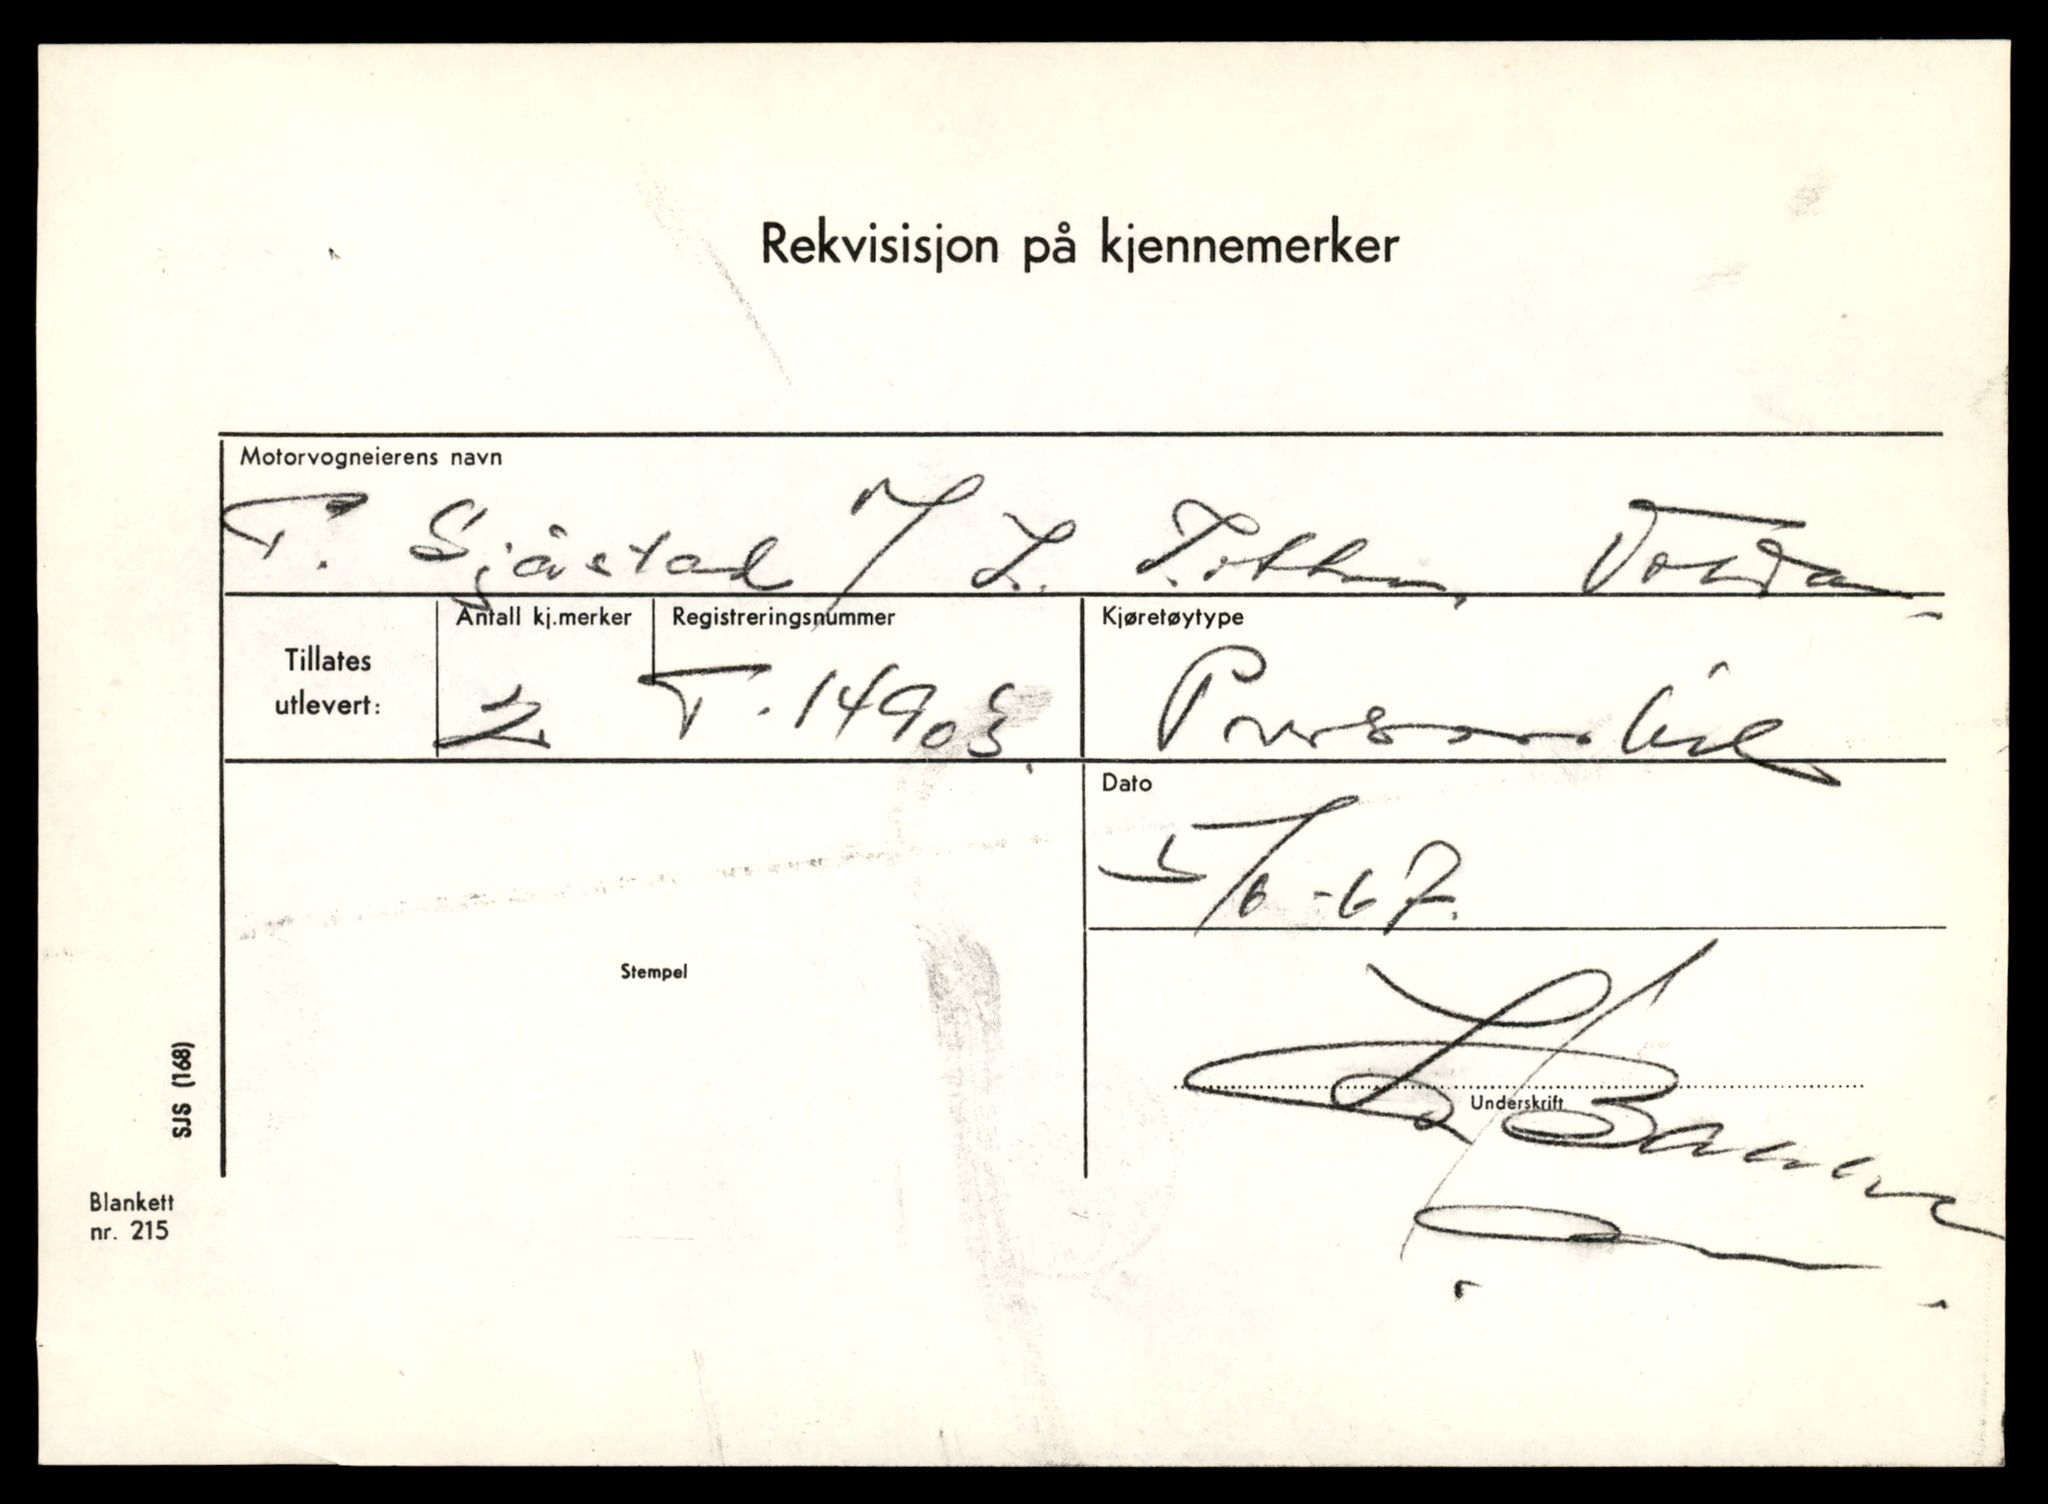 Rekvisisjon på kjennemerker
Motorvogneierens navn
T. Sjåstad / Volda
Tillates
utlevert:
Antall kj.merker
2
Registreringsnummer
T. 14903
Kjøretøytype
Personbil
Dato
5/6-67.
Stempel
Underskrift
SJS (168)
Blankett
nr. 215